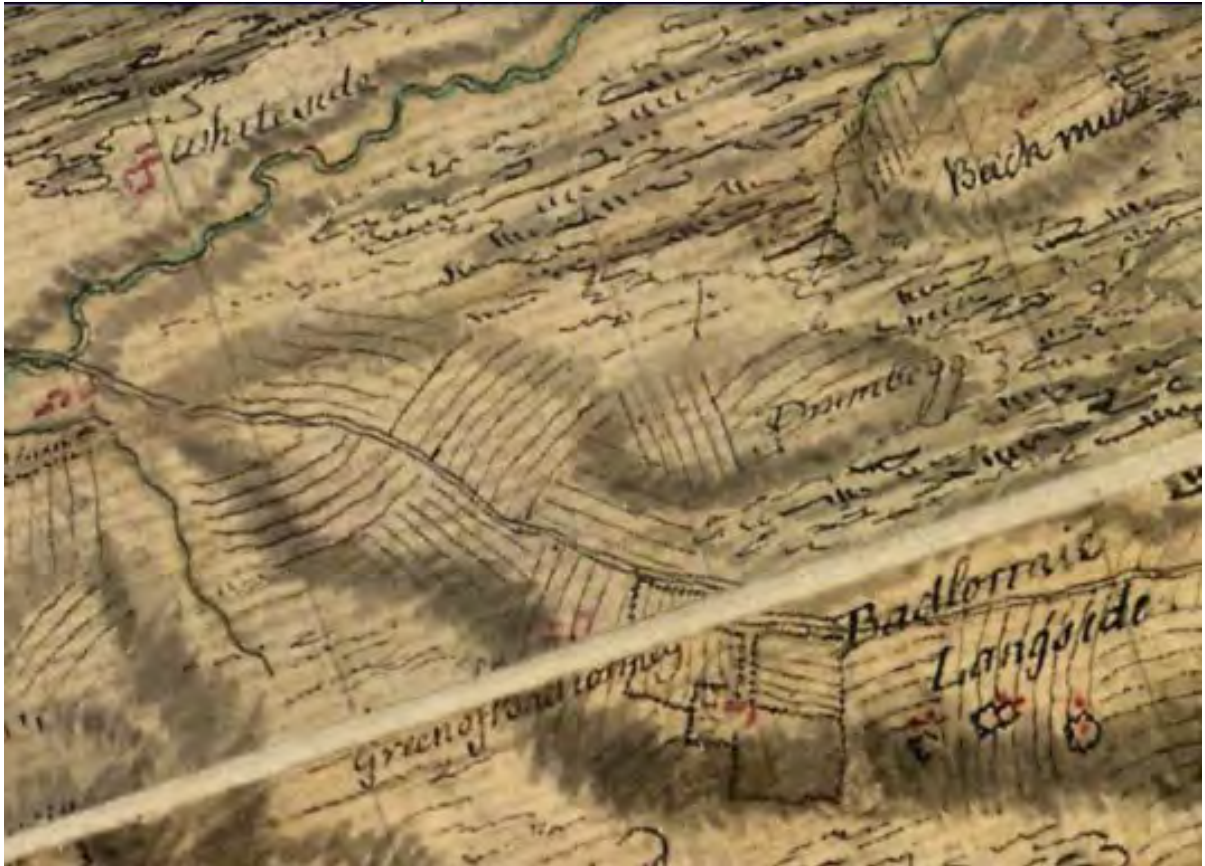 Whiteside
Back muir
Drumbegg
Badlorraie
Langside
Green of Badlorney